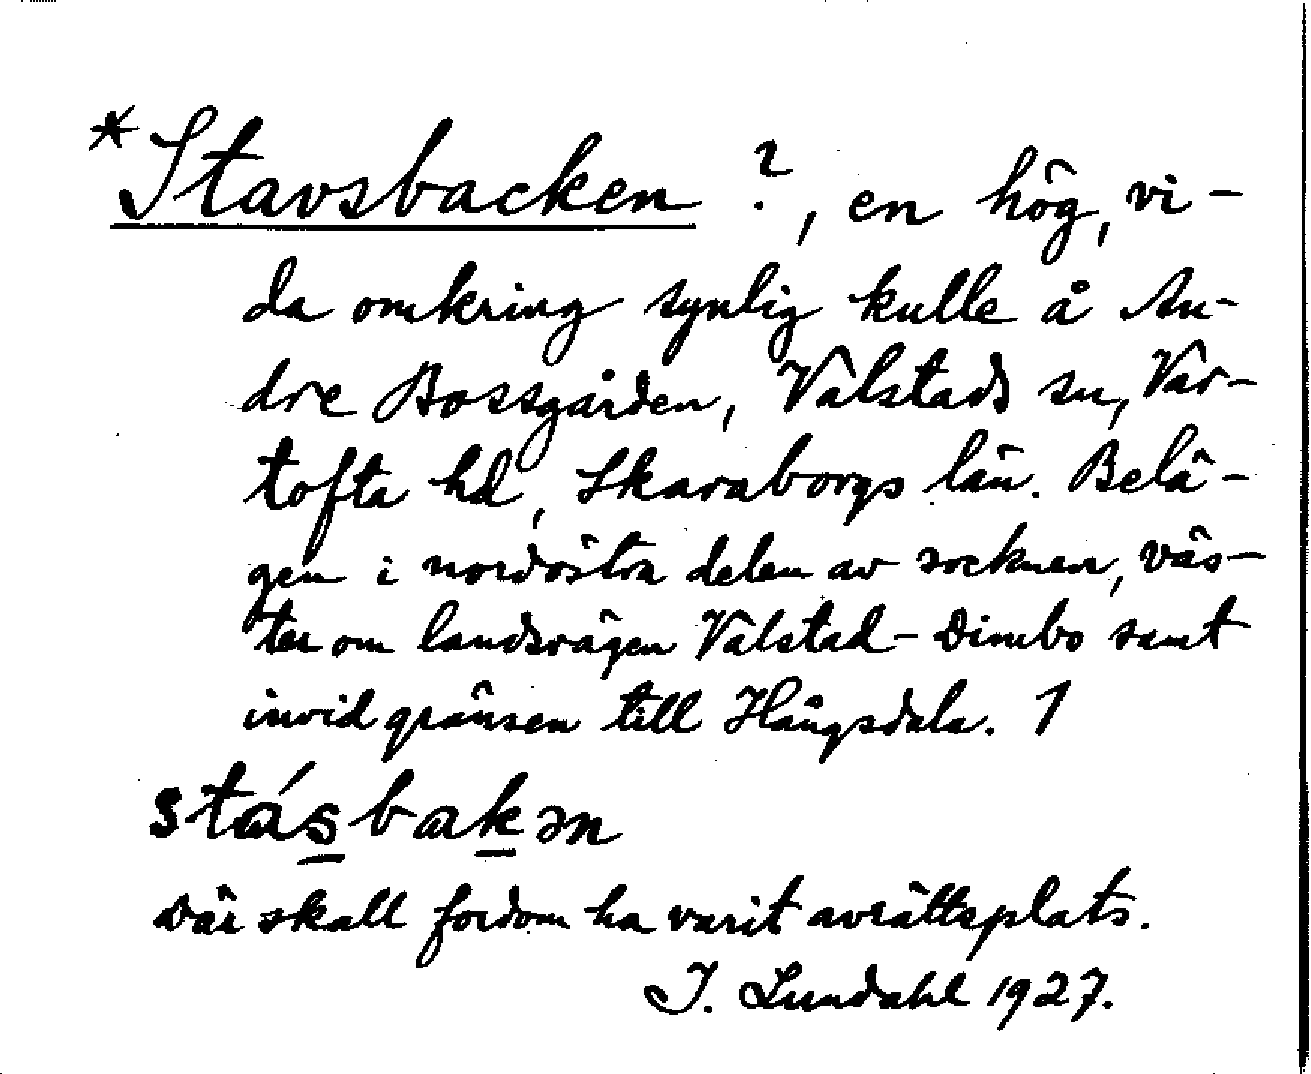 *Stavsbacken ?, en hög, vi-
da omkring synlig kulle å An-
dre Bossgården, Valstads sn, Var-
tofta hd, Skaraborgs län. Belä-
gen i nordöstra delen av socknen, väs-
ter om landsvägen Valstad-Dimbo samt
invid gränsen till Hångsdala. 1
stásbakən
Där skall fordom ha varit avrättsplats.
J. Lundahl 1927.